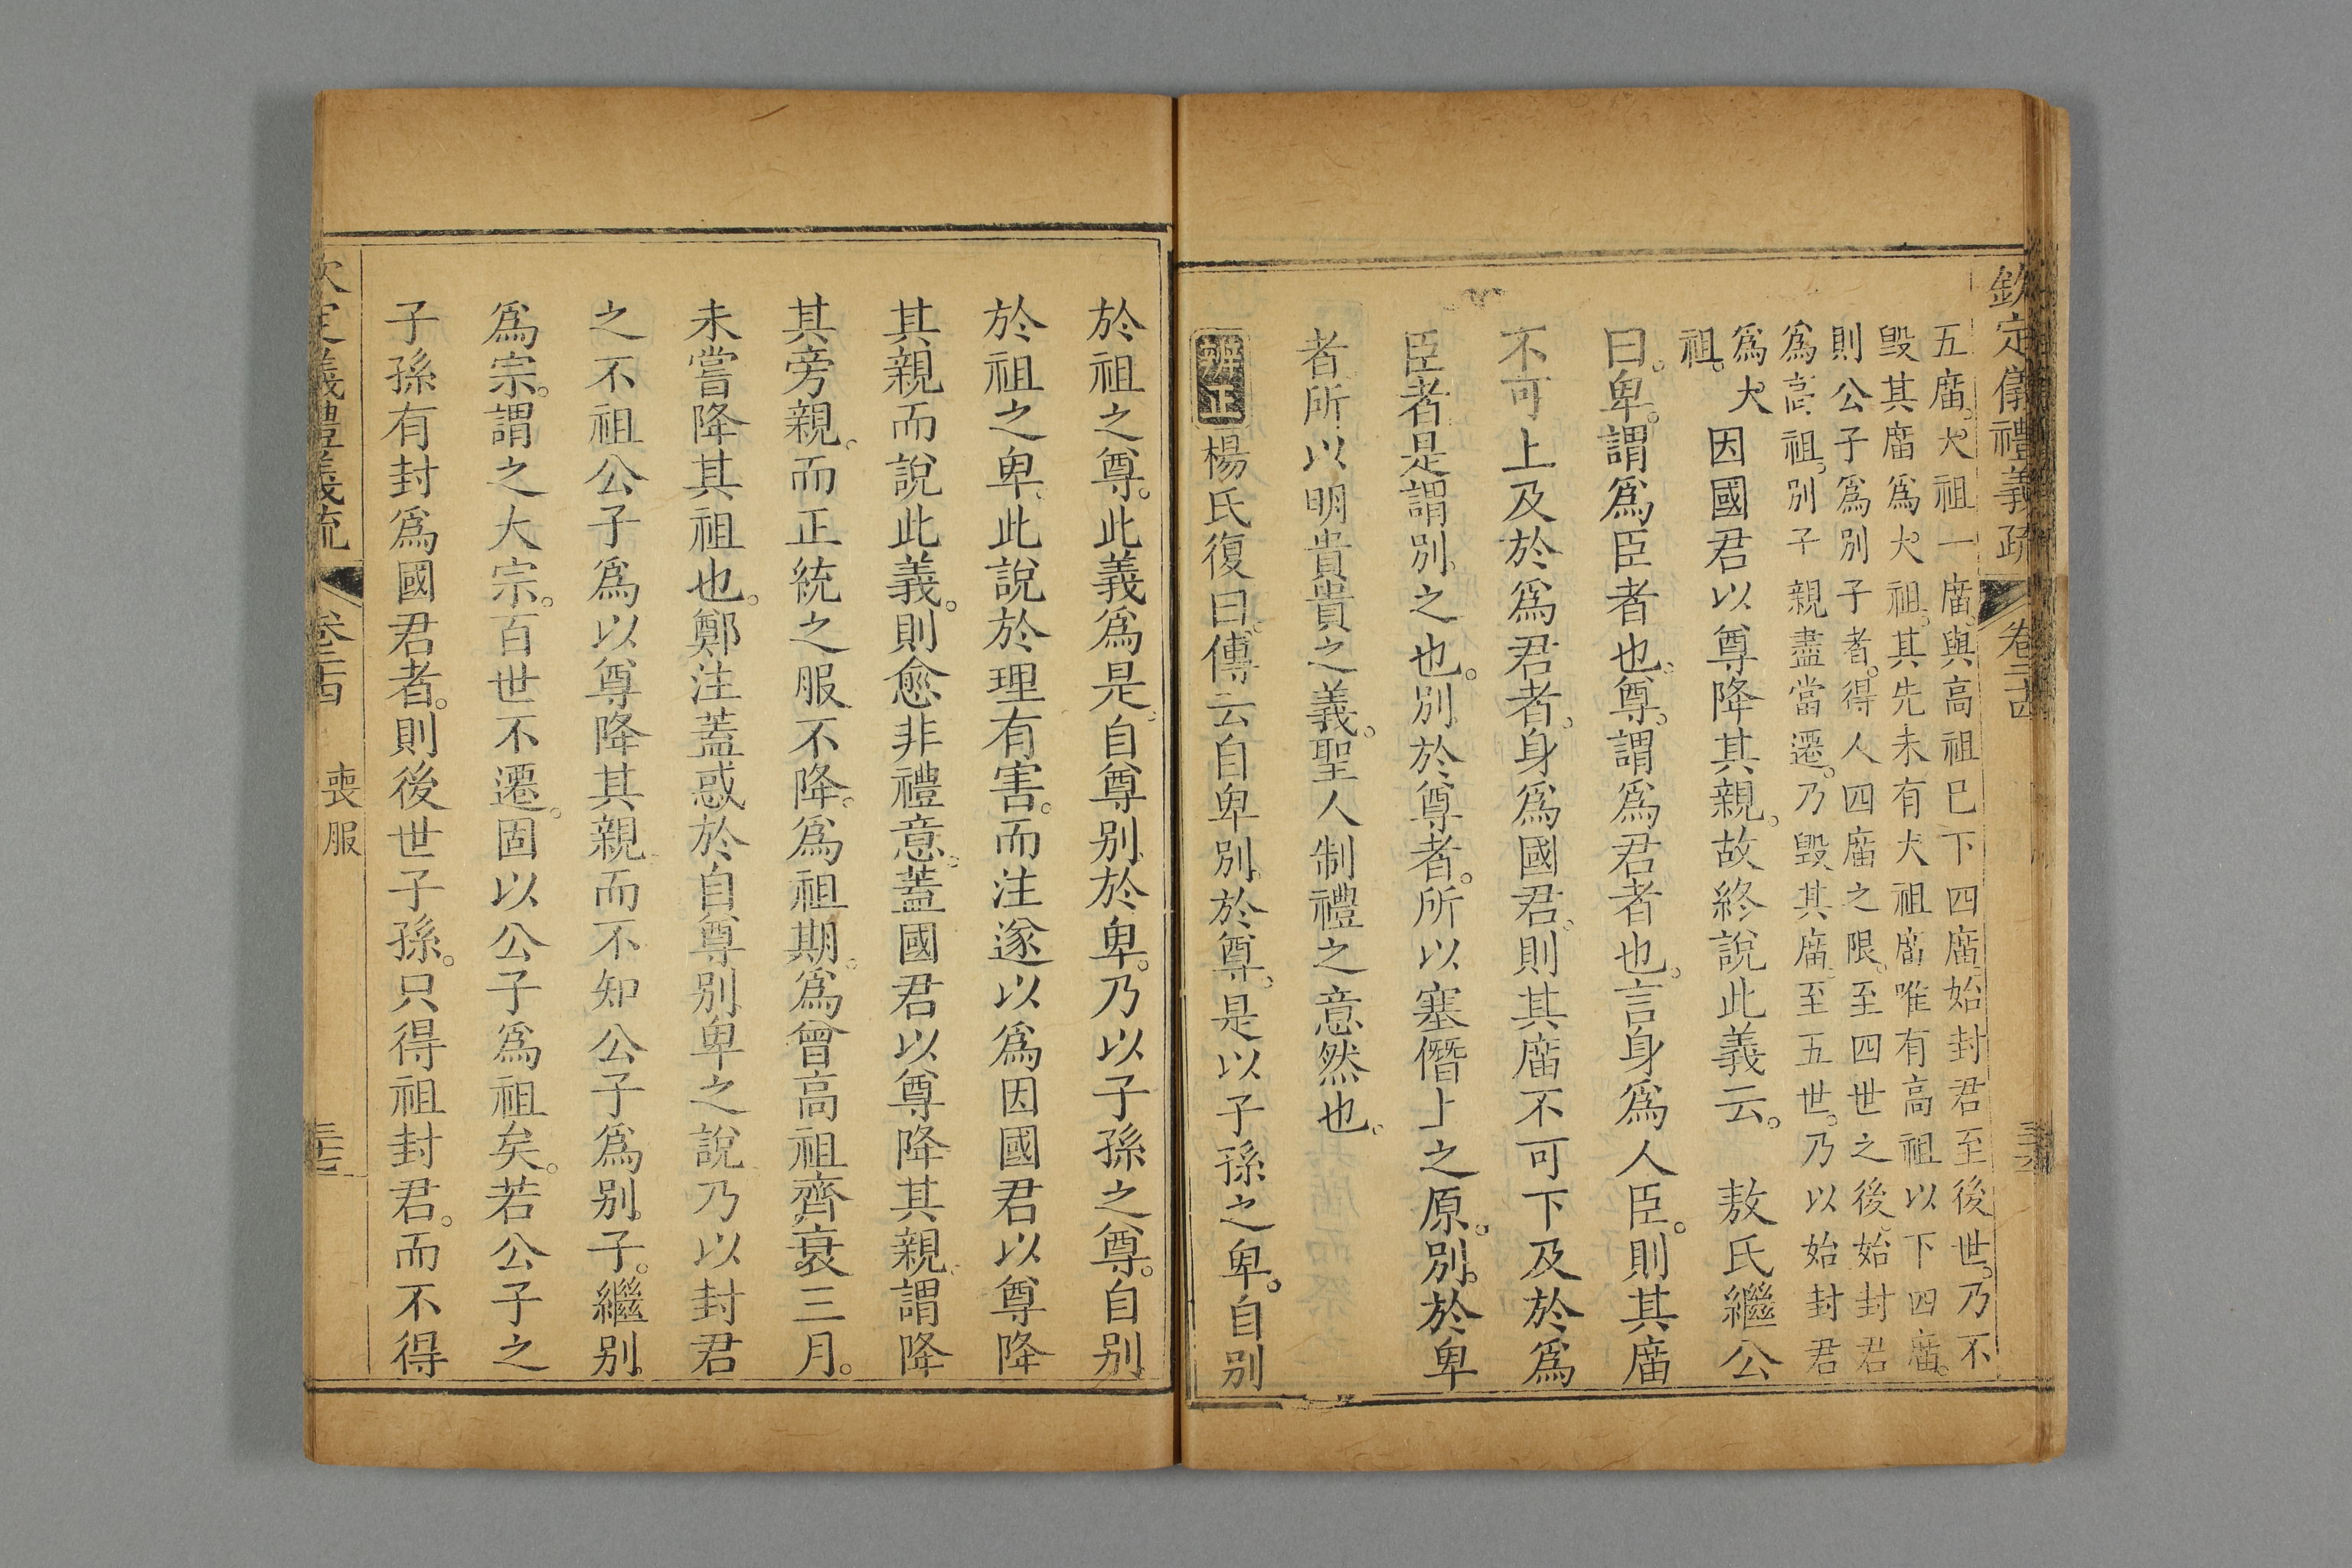 欽定儀禮義疏 卷二十四 三十六
五庿。大祖一庿。與高祖已下四庿。始封君至後世。乃不
毀其庿爲大祖。其先未有大祖庿。唯有高祖以下四庿。
則公子爲別子者。得人四庿之限。至四世之後。始封君
爲高祖。別子親盡當遷。乃毀其庿。至五世。乃以始封君
爲大
祖。
因國君以尊降其親。故終說此義云。 敖氏繼公
曰。卑。謂爲臣者也。尊。謂爲君者也。言身爲人臣。則其庿
不可上及於爲君者。身爲國君。則其庿不可下及於爲
臣者。是謂別之也。別於尊者。所以塞僭上之原。別於卑
者。所以明貴貴之義。聖人制禮之意然也。
辨正 楊氏復曰。傳云自卑別於尊。是以子孫之卑。自別
於祖之尊。此義爲是。自尊別於卑。乃以子孫之尊。自別
於祖之卑。此說於理有害。而注遂以爲因國君以尊降
其親而說此義。則愈非禮意。蓋國君以尊降其親。謂降
其旁親。而正統之服不降。爲祖期。爲曾高祖齊衰三月。
未嘗降其祖也。鄭注蓋惑於自尊別卑之說乃以封君
之不祖公子爲以尊降其親。而不知公子爲別子。繼別
爲宗。謂之大宗。百世不遷。固以公子爲祖矣。若公子之
子孫有封爲國君者。則後世子孫。只得祖封君。而不得
欽定儀禮義疏 卷二十四 喪服 三十七